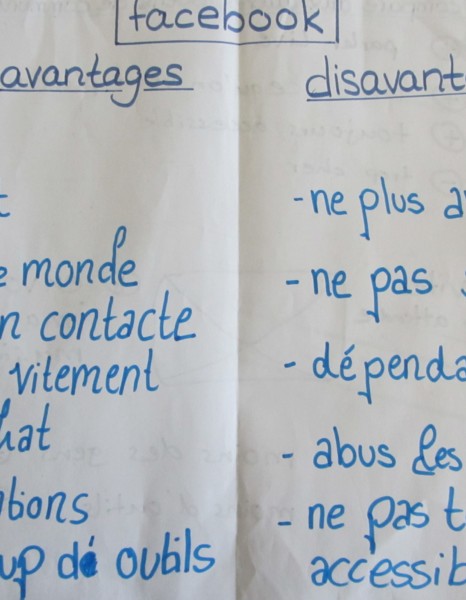 facebook
avantages
e monde
n contacte
vitement
hat
tions
up de outils
disavant
- ne plus a
- ne pas
- dépenda
- abus des
- ne pas t
accessib